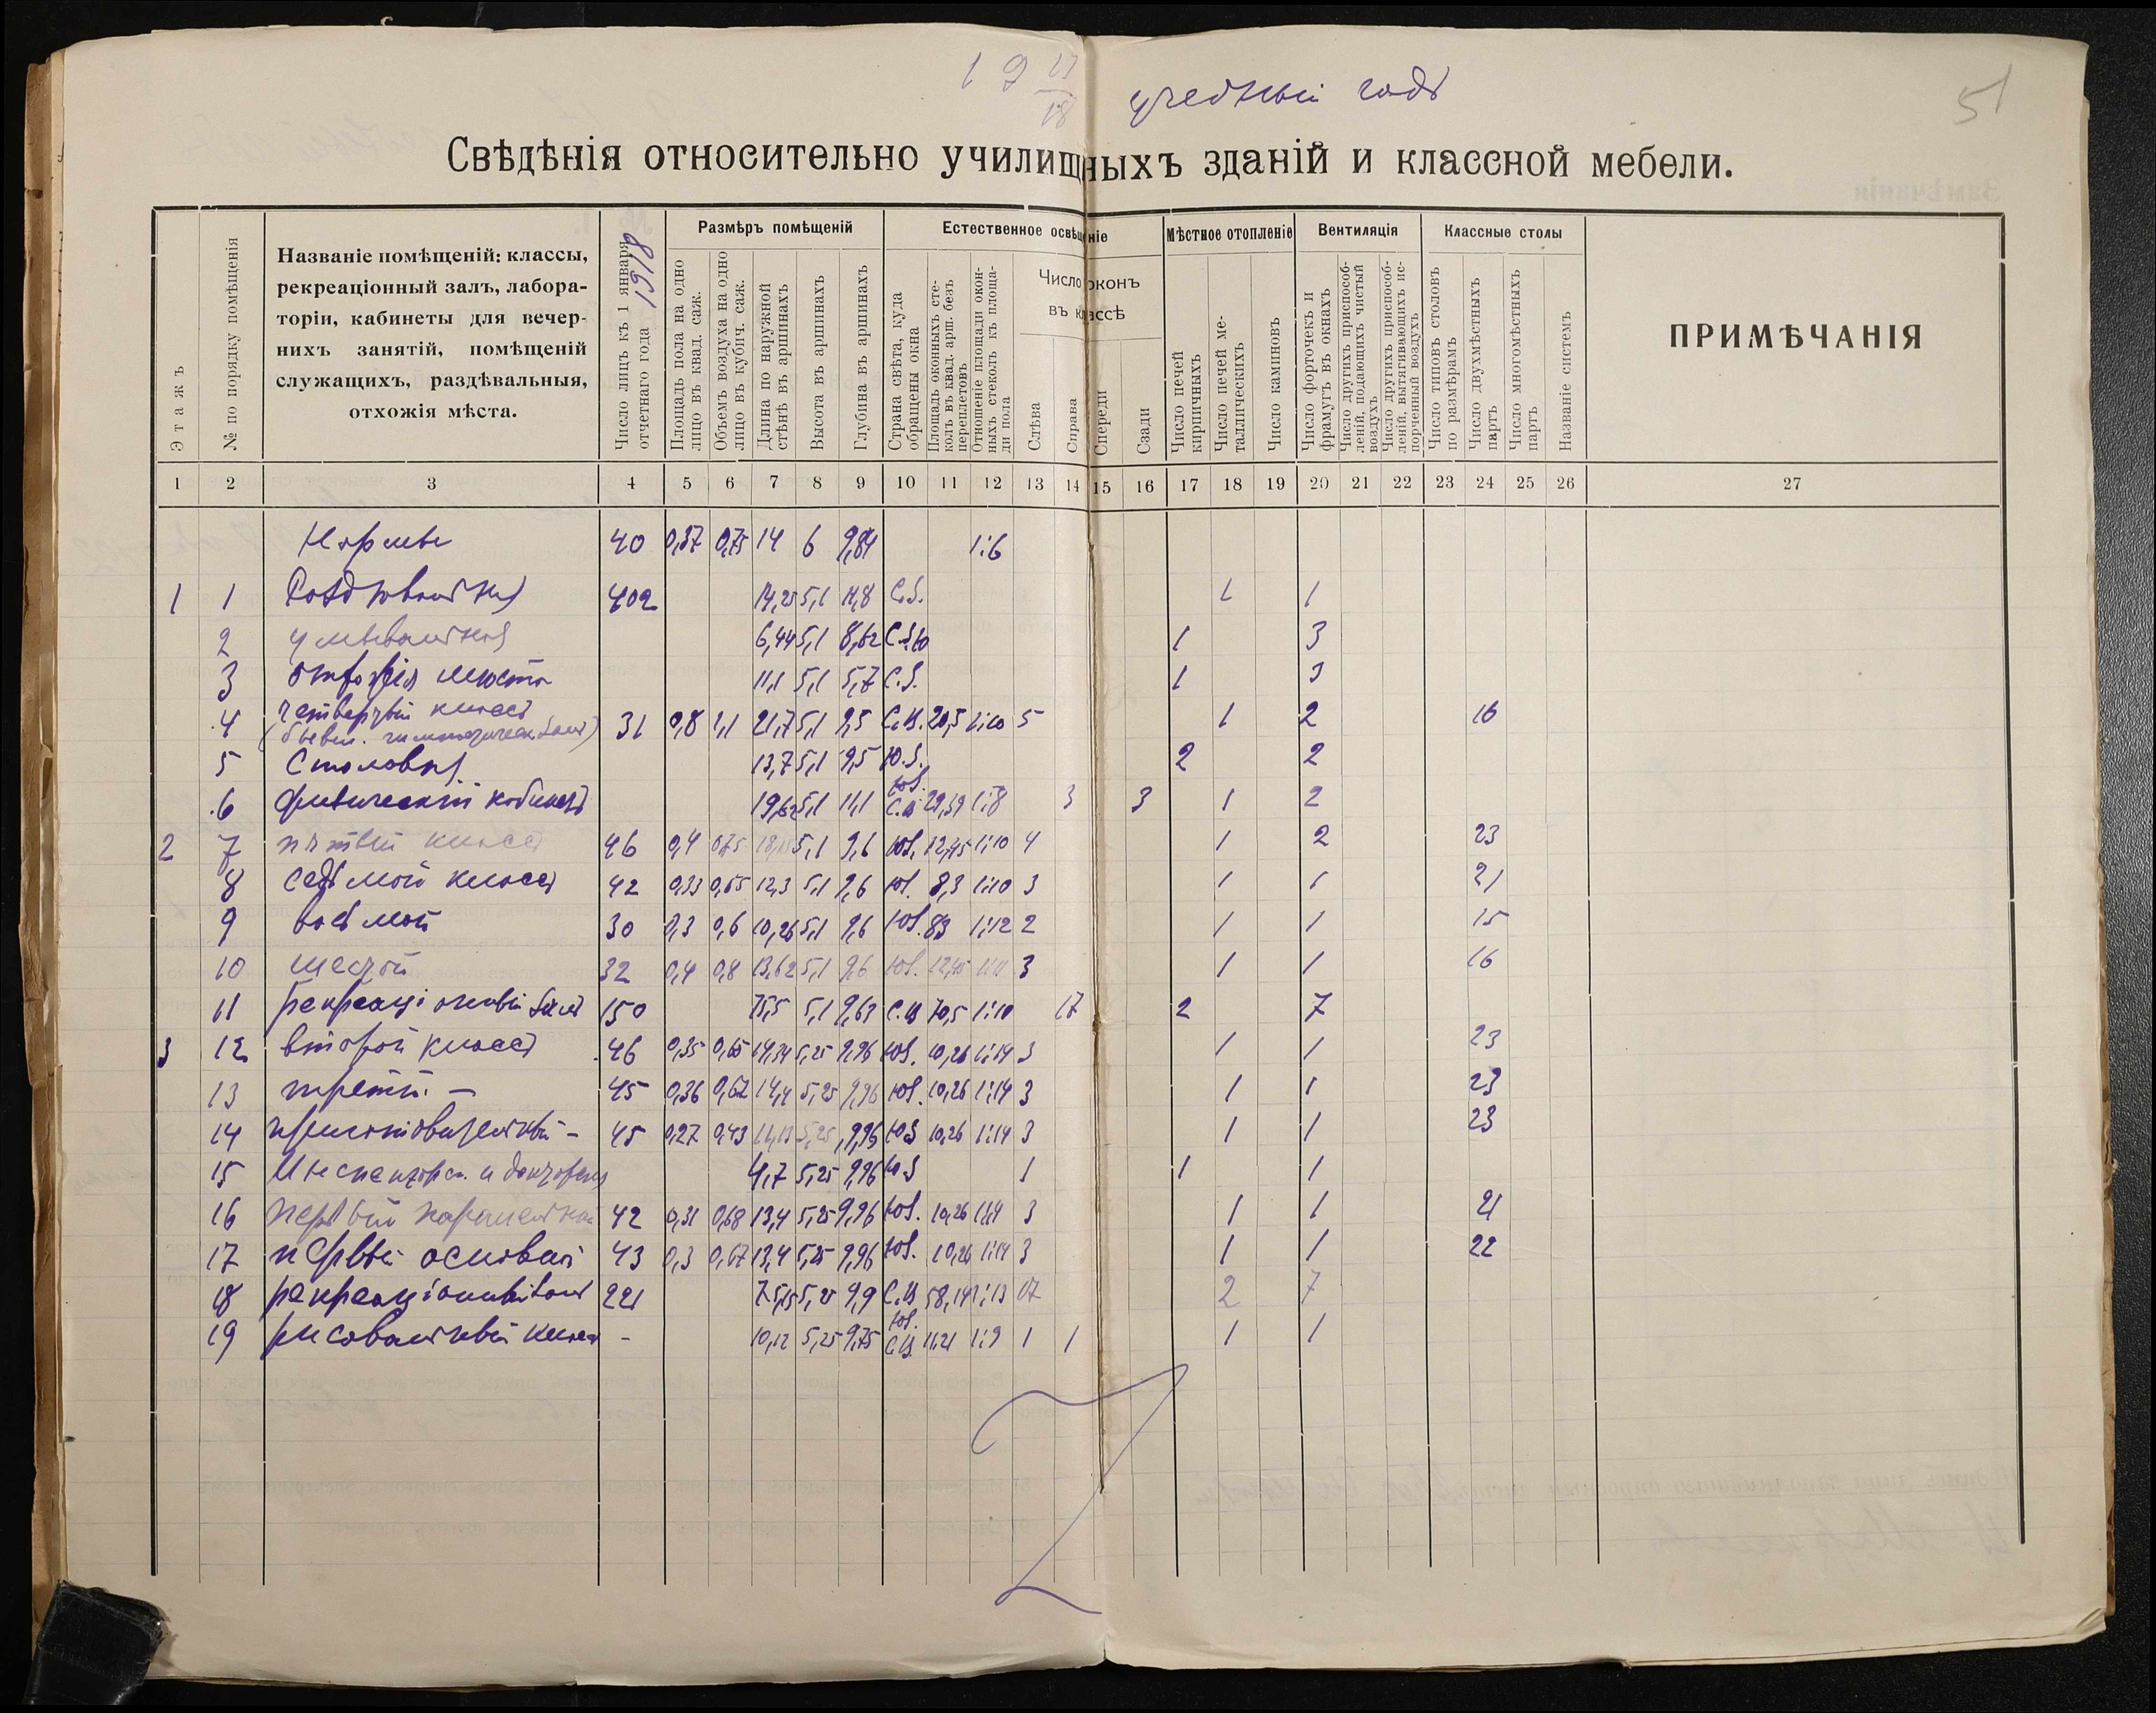 19 17/18 учебный годъ
51
Свѣдѣнія относительно училищныхъ зданій и классной мебели.
Этажъ
№ по порядку помѣщенія
Названіе помѣщеній: классы,
рекреаціонный залъ, лабора-
торіи, кабинеты для вечер-
нихъ занятій, помѣщеній
служащихъ, раздѣвальныя,
отхожія мѣста.
Число лицъ къ 1 января
отчетнаго года 1918
Размѣръ помѣщеній
Площадь пола на одно
лицо въ квад. саж.
Объемъ воздуха на одно
лицо въ кубич. саж.
Длина по наружной
стѣнѣ въ аршинахъ
Высота въ аршинахъ
Глубина въ аршинахъ
Естественное освѣщеніе
Страна свѣта, куда
обращены окна
Площадь оконныхъ сте-
колъ въ квад. арш. безъ
переплетовъ
Отношеніе площади окон-
ныхъ стеколъ къ площа-
ди пола
Число оконъ
въ классѣ
Слѣва
Справа
Спереди
Сзади
Мѣстное отопленіе
Число печей
кирпичныхъ
Число печей ме-
таллическихъ
Число каминовъ
Вентиляція
Число форточекъ и
фрамугъ въ окнахъ
Число другихъ приспособ-
леній, подающихъ чистый
воздухъ
Число другихъ приспособ-
леній, вытягивающихъ ис-
порченный воздухъ
Классные столы
Число типовъ столовъ
по размѣрамъ
Число двухмѣстныхъ
партъ
Число многомѣстныхъ
партъ
Названіе системъ
ПРИМѢЧАНІЯ
1 2 3 4 5 6 7 8 9 10 11 12 13 14 15 16 17 18 19 20 21 22 23 24 25 26 27
Нормы 40 0,37 0,75 14 6 9,84 1:6
1 1 Раздѣвальная 402 14,25 5,1 14,8 С.З. 1 1
2 умывальная 6,44 5,1 8,62 1 3
3 отхожія мѣста 11,1 5,1 5,7 С.З. 1 3
4 четвертый классъ 31 0,8 1,1 21,7 5,1 9,5 С.В. 20,5 1:10 5 1 2 16
(бывш. гимнастическ. залъ)
5 Столовая 13,7 5,1 9,5 Ю.З. 2 2
6 физическій кабинетъ 19,62 5,1 11,1 ЮЗ. С.В. 29,39 1:8 3 3 1 2
2 7 пятый классъ 46 0,4 0,75 5,1 9,6 ЮЗ. 12,45 1:10 4 1 2 23
8 седьмой классъ 42 0,33 0,65 12,3 5,1 9,6 ЮЗ. 8,3 1:10 3 1 1 21
9 восьмой 30 0,3 0,6 10,26 5,1 9,6 ЮЗ. 83 1:12 2 1 1 15
10 шестой 32 0,4 0,8 13,62 5,1 9,6 ЮЗ. 12,45 1:11 3 1 1 16
11 рекреаціонный залъ 150 75,5 5,1 9,63 С.В. 70,5 1:10 17 2 7
3 12 второй классъ 46 0,35 0,65 14,34 5,25 9,96 ЮЗ. 10,26 1:14 3 1 1 23
13 третій — 45 0,36 0,67 14,4 5,25 9,96 ЮЗ. 10,26 1:14 3 1 1 23
14 приготовительный – 45 0,27 0,43 11,13 5,25 9,96 ЮЗ 10,26 1:14 3 1 1 23
15 Инспекторск. и докторская 4,7 5,25 9,96 ЮЗ 1 1 1
16 первый параллельный 42 0,31 0,68 13,4 5,25 9,96 ЮЗ. 10,26 1:14 3 1 1 21
17 первый основной 43 0,3 0,67 13,4 5,25 9,96 ЮЗ. 10,26 1:14 3 1 1 22
18 рекреаціонный залъ 221 75,15 5,25 9,9 С.В. 58,14 1:13 17 2 7
19 рисовальный классъ – 10,12 5,25 9,75 ЮЗ. С.В. 11,21 1:9 1 1 1 1